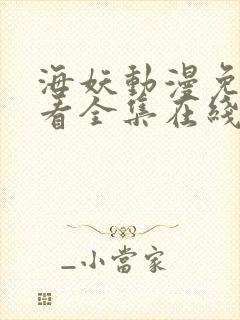 海妖動漫免
看全集在綫
_小當家